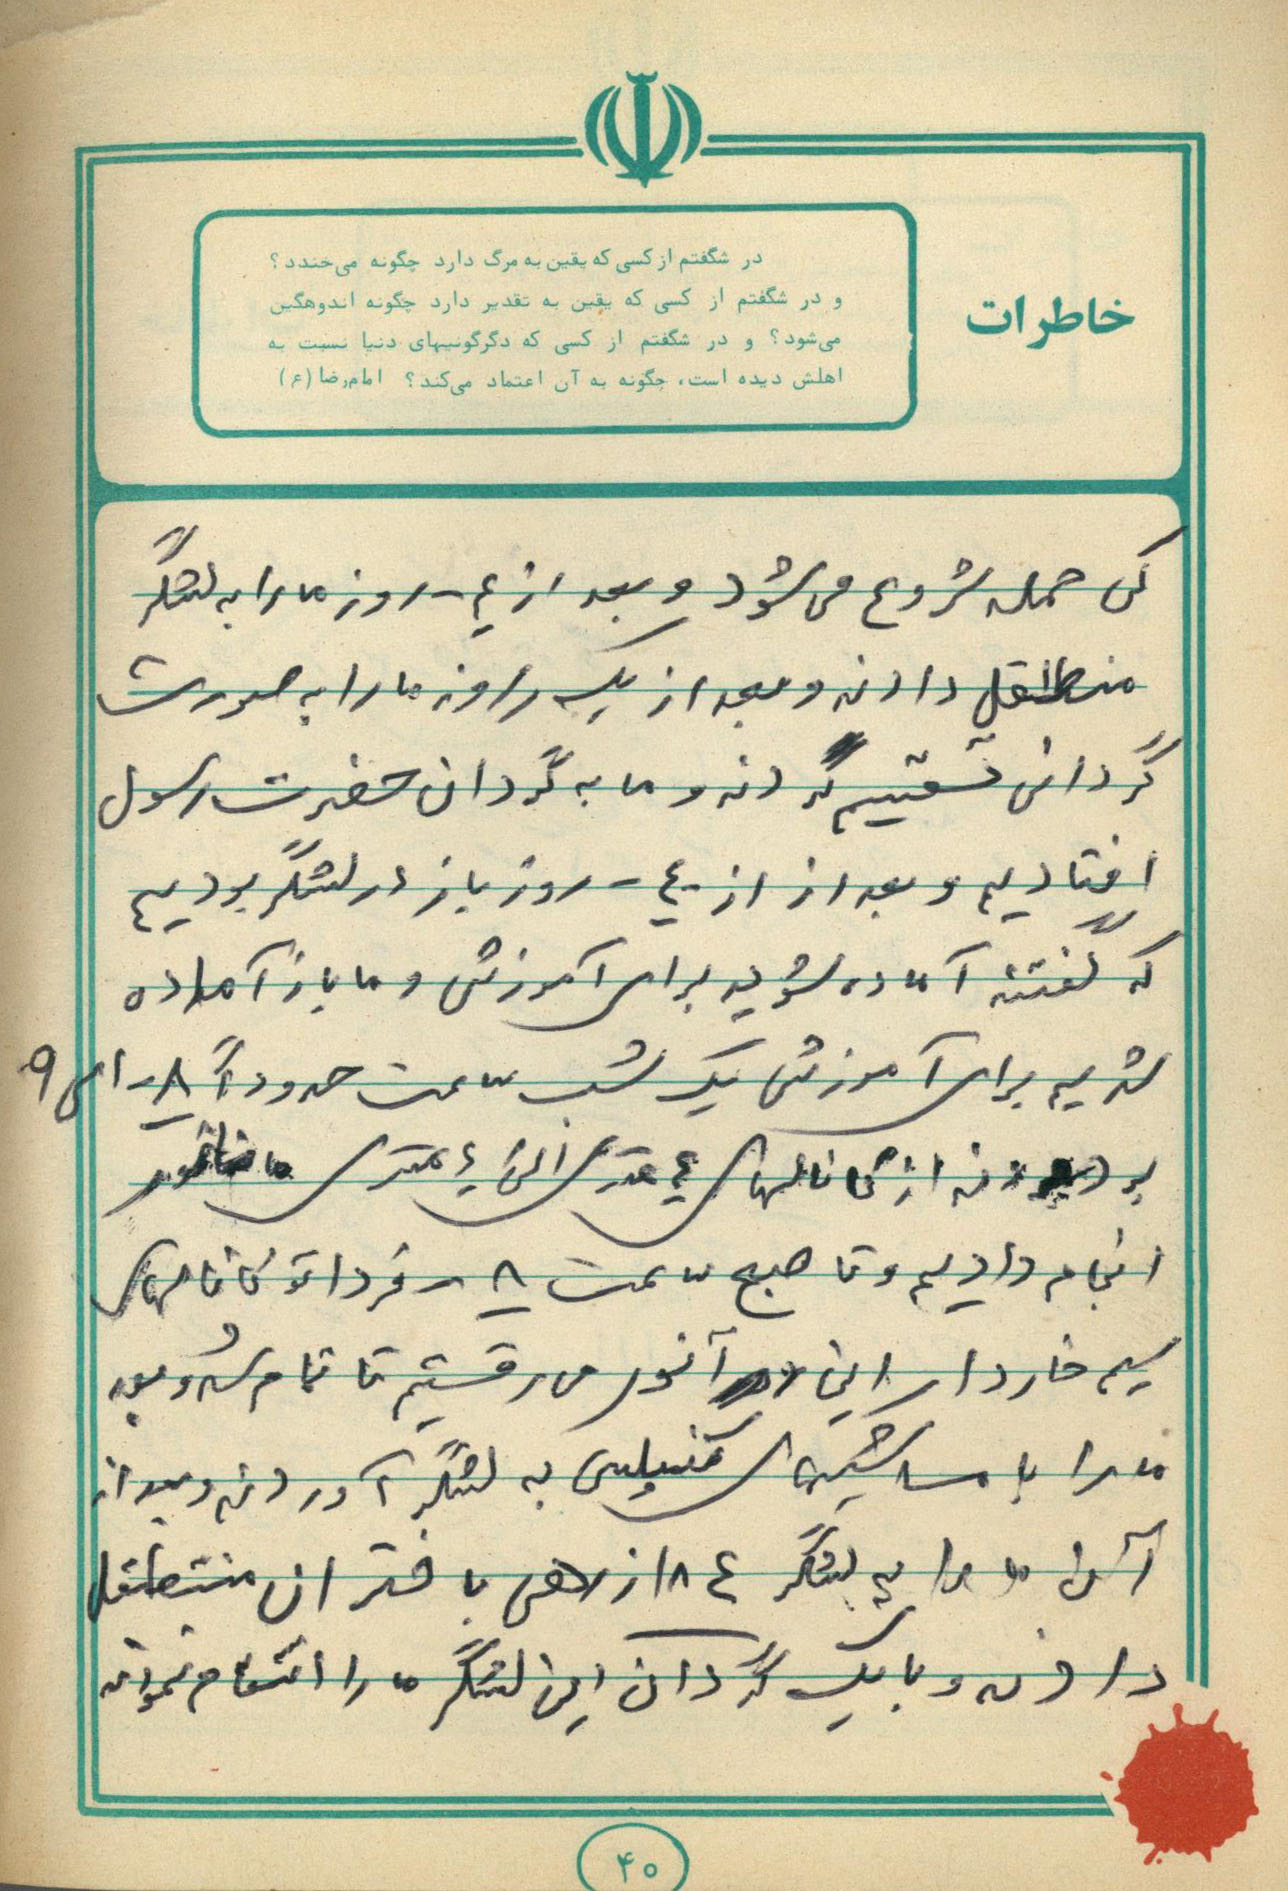 خاطرات
در شگفتم از کسی که یقین به مرگ دارد چگونه می‌خندد؟
و در شگفتم از کسی که یقین به تقدیر دارد چگونه اندوهگین
می‌شود؟ و در شگفتم از کسی که دگرگونیهای دنیا نسبت به
اهلش دیده است، چگونه به آن اعتماد می‌کند؟ امام‌رضا (ع)
کی حمله شروع می شود و بعد از ۴ - روز ما را به لشگر
منطقل دادند و بعد از یک روز ما را به صورت
گردانی تقسیم کردند و ما به گردان حضرت رسول
افتادیم و بعد از از ۴ - روز باز در لشگر بودیم
که گفتند آماده شوید برای آموزش و ما باز آماده
شدیم برای آموزش یک شب ساعت حدوداً ۸ - الی ۹
بردند از کانالهای ۴ متری الی ۶ متری ما
انجام دادیم و تا صبح ساعت ۸ - فردا تو کانالهای
سیم خاردار این ور آنور می رفتیم تا تمام شد و بعد
ما را با ماشینهای کمپرسی به لشگر آوردند و بعد از
آن ما را به لشگر ۸۴ از باختران منتطقل
دادند و با یک گردان این لشگر ما را ادغام نمودند
۴۰